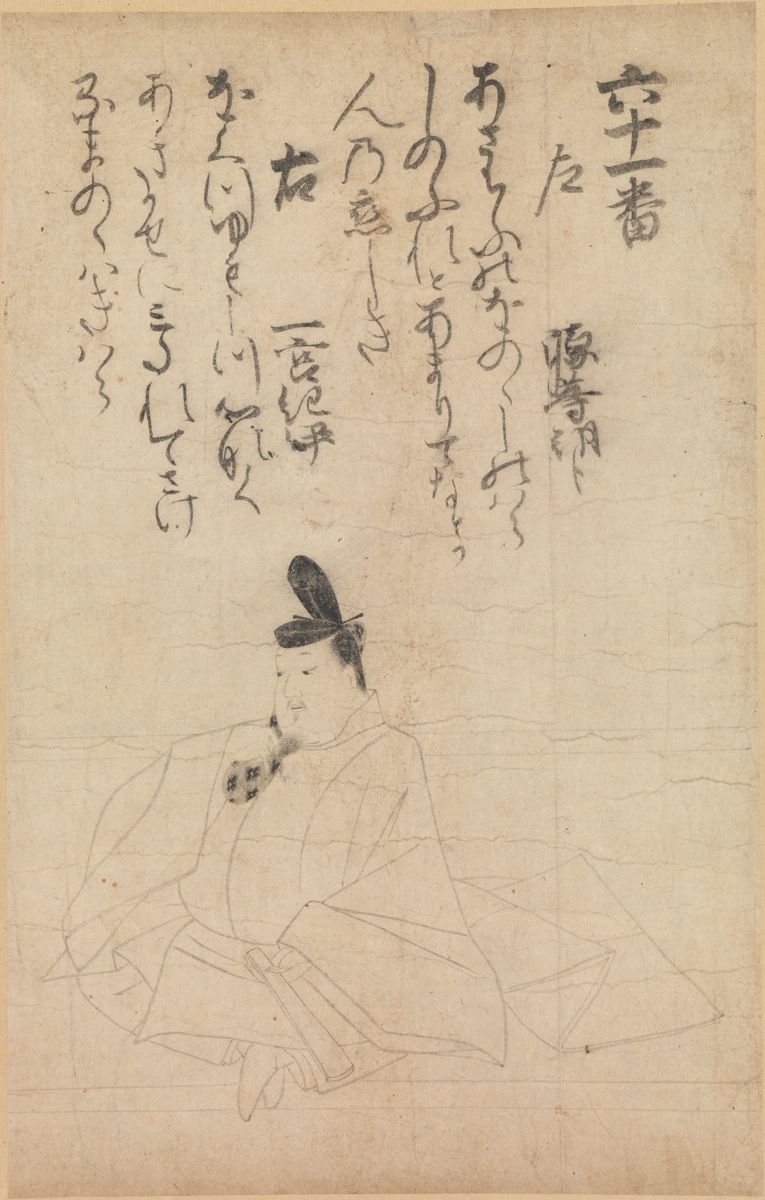 六十一番
左 源等朝臣
あさちふのをのゝしのはら
しのふれとあまりてなとか
人乃恋しき
右 一宮紀伊
をくつゆもしつ心なく
あきかせにみたれてさけ
るまのゝはきはら